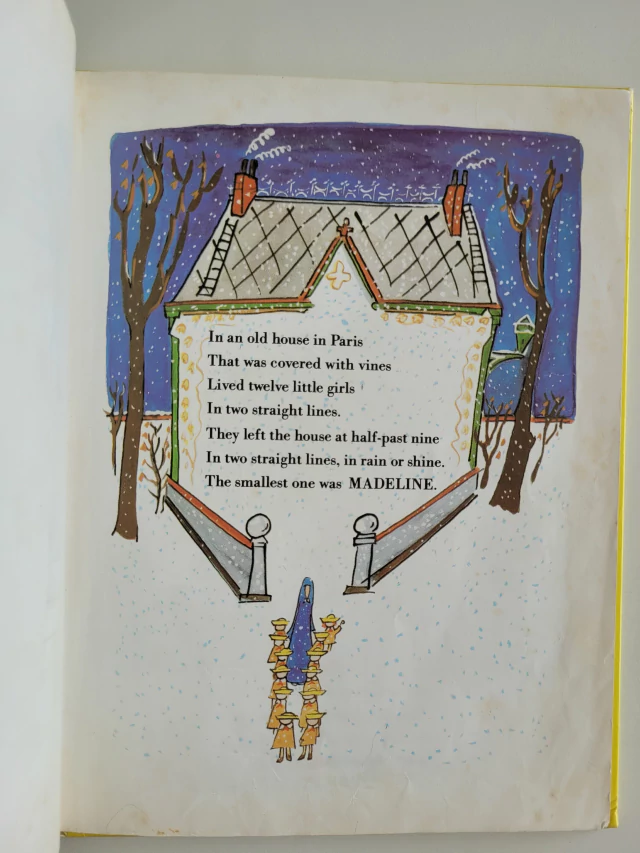 In an old house in Paris
That was covered with vines
Lived twelve little girls
In two straight lines.
They left the house at half-past nine
In two straight lines, in rain or shine.
The smallest one was MADELINE.